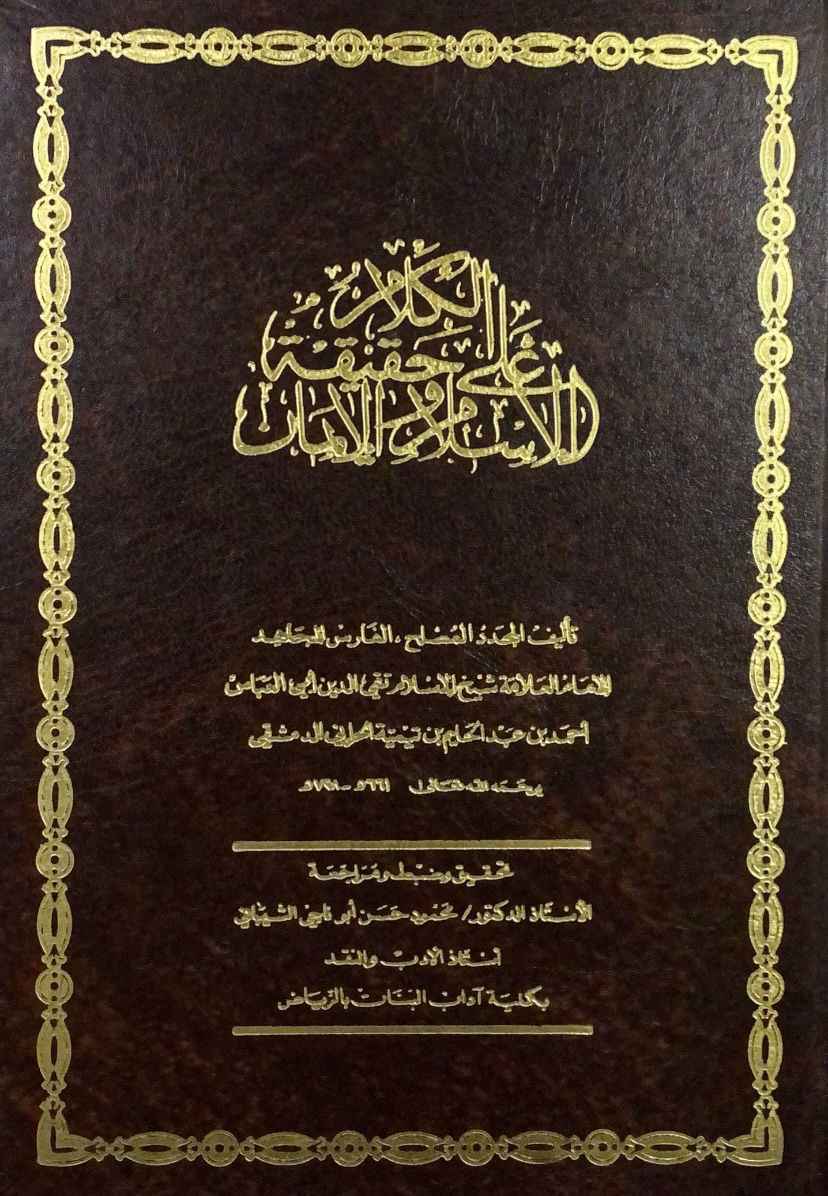 الكلام
على حقيقة
الإسلام والإيمان
تأليف المجدد المصلح ، الفارس المجاهد
الإمام العلامة شيخ الإسلام تقي الدين أبي العباس
أحمد بن عبد الحليم بن تيمية الحراني الدمشقي
يرحمه الله تعالى ٦٦١هـ - ٧٢٨هـ
تحقيق وضبط ومراجعة
الأستاذ الدكتور / محمود حسن أبو ناجي الشيباني
أستاذ الأدب والنقد
بكلية آداب البنات بالرياض